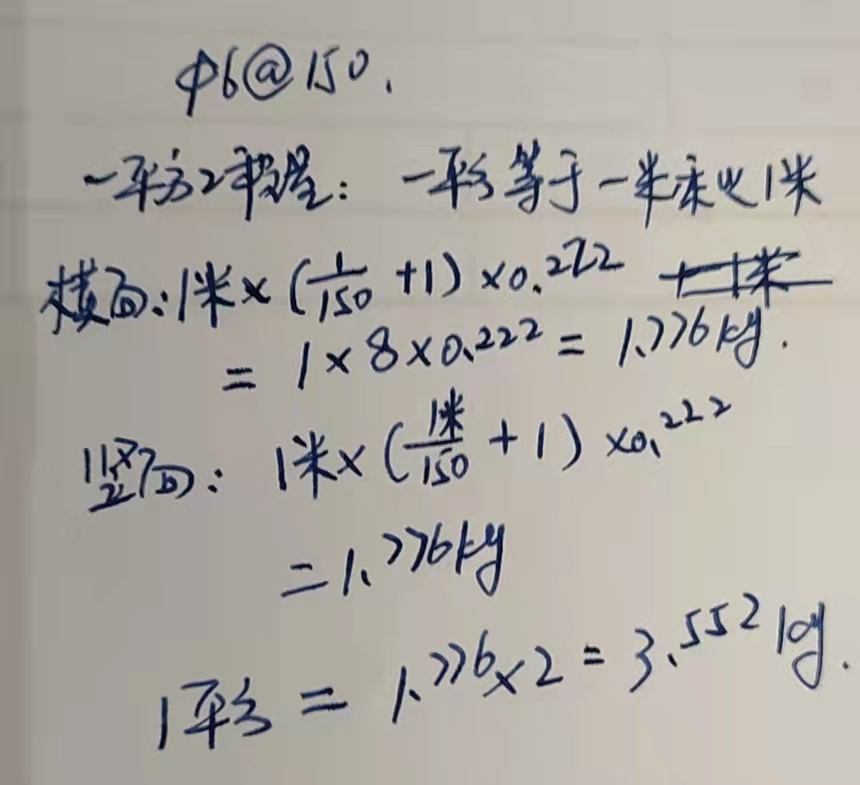 φ6@150.
一平方2重量: 一平方等于一米乘以1米
横面:1米×(1/150+1)×0.222
=1×8×0.222=1.776kg.
竖面:1米×(1米/150+1)×0.222
=1.776kg
1平方=1.776×2=3.552kg.